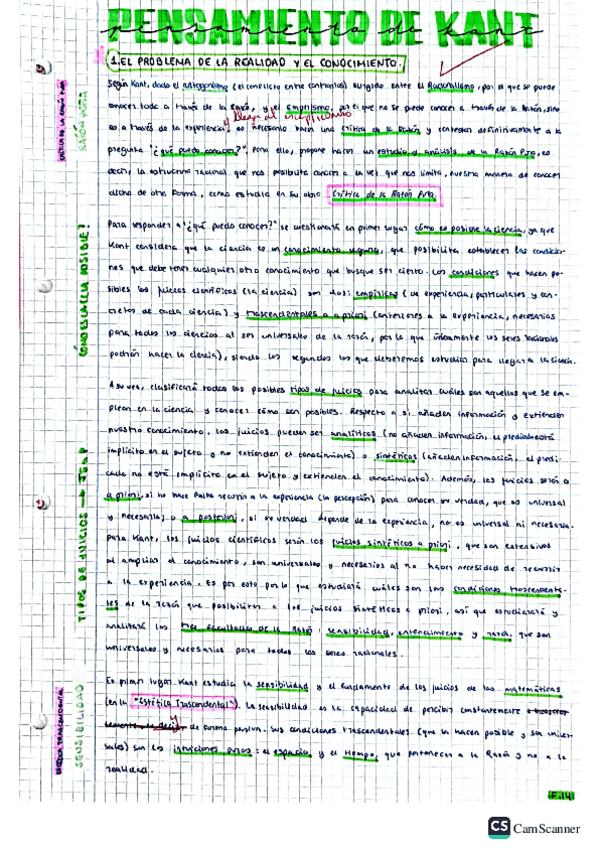 PENSAMIENTO DE KANT
1. EL PROBLEMA DE LA REALIDAD Y EL CONOCIMIENTO.
Según Kant, dado el antagonismo (el conflicto entre contrarios) surgido entre el Racionalismo, por el que se puede
conocer todo a través de la Razón, y el Empirismo, por el que no se puede conocer a través de la Razón, sino
y llega al escepticismo
es a través de la experiencia, es necesario hacer una crítica de la Razón y contestar definitivamente a la
pregunta "¿qué puedo conocer?". Para ello, propone hacer un estudio y análisis de la Razón Pura, es
decir, la estructura racional que nos posibilita conocer a la vez que nos limita, nuestra manera de conocer
dicho de otra forma, como estudia en su obra Crítica de la Razón Pura.
CRÍTICA DE LA RAZÓN PURA
RAZÓN PURA
Para responder a "¿qué puedo conocer?" se cuestionará en primer lugar cómo es posible la ciencia, ya que
Kant considera que la ciencia es un conocimiento seguro, que posibilita establecer las condicio-
nes que debe tener cualquier otro conocimiento que busque ser cierto. Las condiciones que hacen po-
sibles los juicios científicos (la ciencia) son dos: empíricas (de experiencia, particulares y con-
cretas de cada ciencia) y trascendentales o a priori (anteriores a la experiencia, necesarias
para todas las ciencias al ser universales de la razón, por lo que únicamente los seres racionales
podrán hacer la ciencia), siendo las segundas las que deberemos estudiar para llegar a la ciencia.
¿CÓMO ES LA CCIA POSIBLE?
A su vez, clasificará todos los posibles tipos de juicios para analizar cuáles son aquellos que se em-
plean en la ciencia y conocer cómo son posibles. Respecto a si añaden información y extienden
nuestro conocimiento, los juicios pueden ser analíticos (no añaden información, el predicado está
implícito en el sujeto y no extienden el conocimiento) o sintéticos (añaden información, el predi-
cado no está implícito en el sujeto y extienden el conocimiento). Además, los juicios serán o
a priori, si no hace falta recurrir a la experiencia (la percepción) para conocer su verdad, que es universal
y necesaria; o a posteriori, si su verdad depende de la experiencia, no es universal ni necesaria.
Para Kant, los juicios científicos serán los juicios sintéticos a priori, que son extensivos
al ampliar el conocimiento, son universales y necesarios al no haber necesidad de recurrir
a la experiencia. Es por esto por lo que estudiará cuáles son las condiciones trascendenta-
les de la razón que posibilitan a los juicios sintéticos a priori, así que estudiará y
analizará las tres facultades de la Razón: sensibilidad, entendimiento y razón, que son
universales y necesarias para todos los seres racionales.
TIPOS DE JUICIOS → JSAP
En primer lugar Kant estudia la sensibilidad y el fundamento de los juicios de las matemáticas
(en la "Estética Trascendental"). La sensibilidad es la capacidad de percibir
y
de forma pasiva. Sus condiciones trascendentales (que la hacen posible y son univer-
sales) son las intuiciones puras: el espacio, y el tiempo, que pertenecen a la Razón y no a la
realidad.
ESTÉTICA TRASCENDENTAL
SENSIBILIDAD
F.141
CS CamScanner